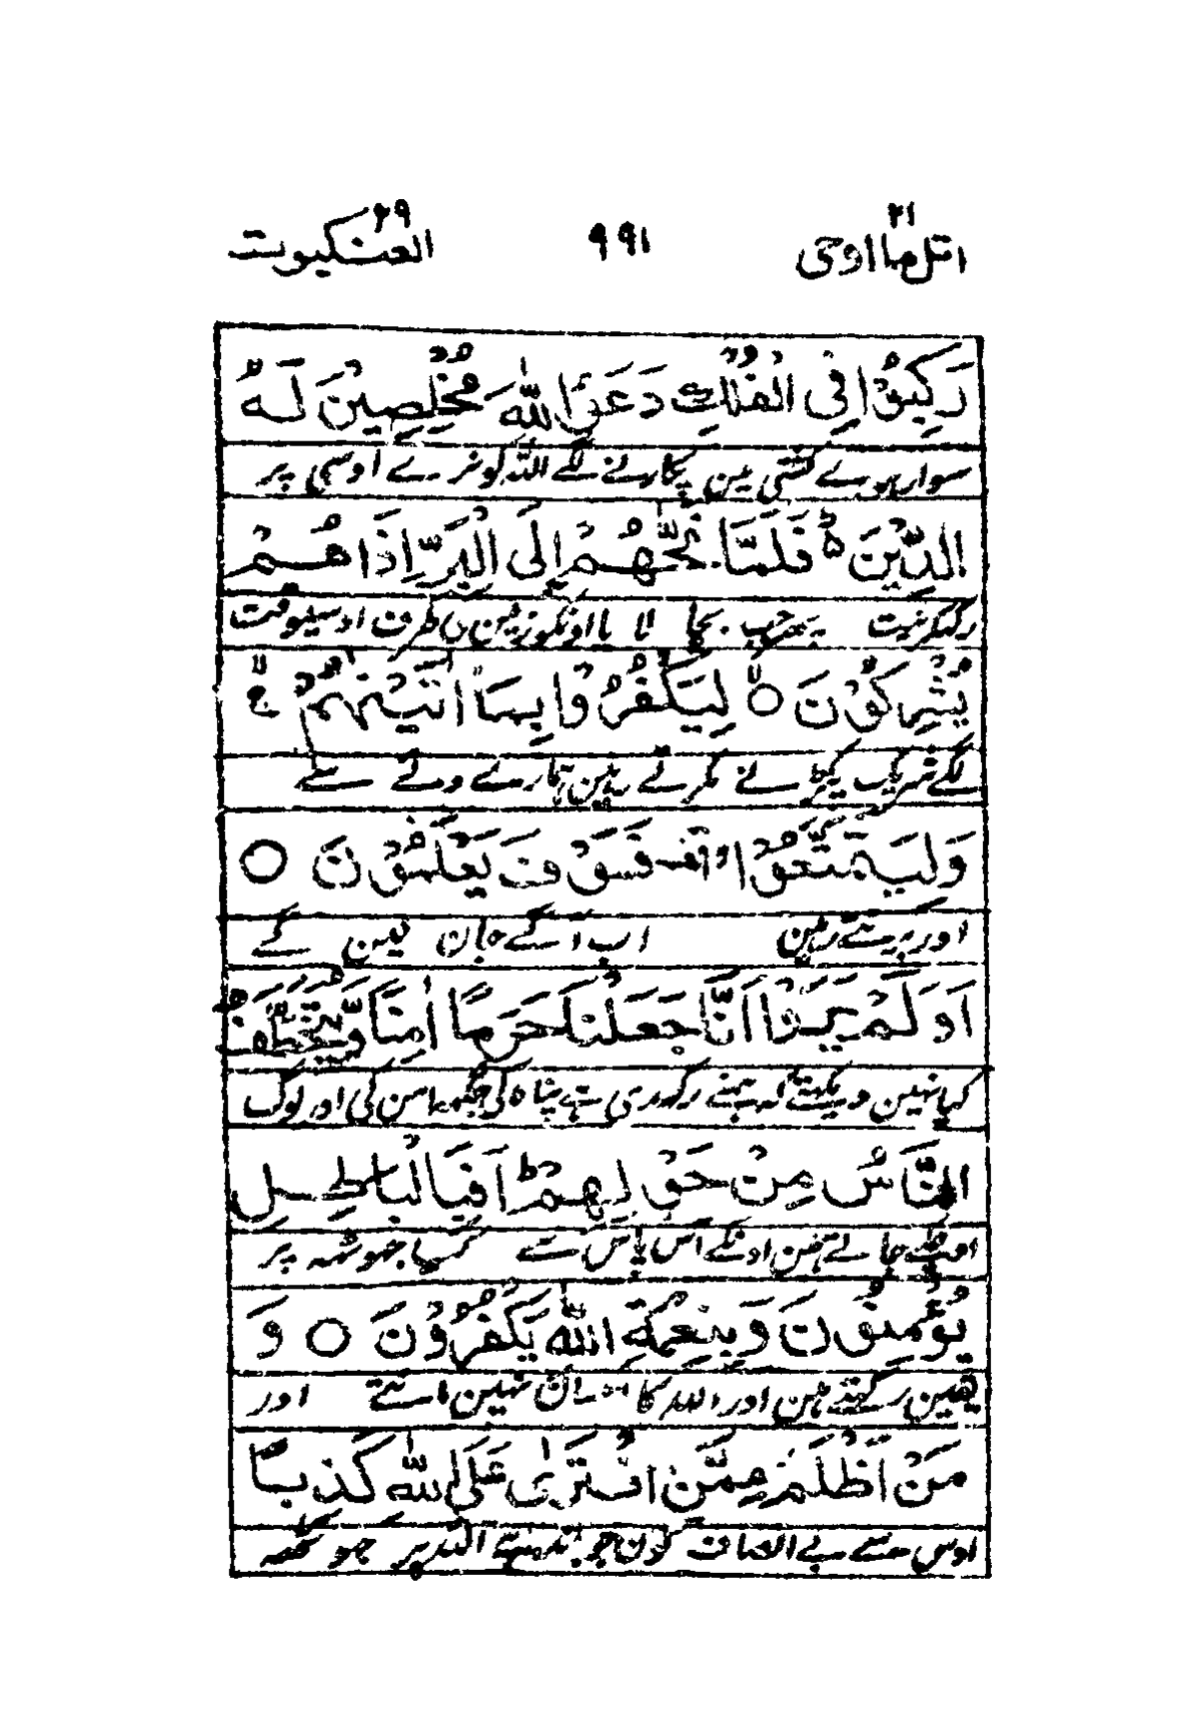 اتل ما اوحی ۲۱ ۹۹۱ العنکبوت ۲۹
رَكِبُوْا فِی الْفُلْكِ دَعَوُا اللّٰهَ مُخْلِصِیْنَ لَهُ
سوار ہوے کشتی مین پکارنے لگے اللہ کو نرے اوسی پر
الدِّیْنَ ۚ۬ فَلَمَّا نَجّٰىهُمْ اِلَى الْبَرِّ اِذَا هُمْ
رکھکر نیت پھر جب بچا لا یا اونکو زمین کی طرف اوسیوقت
یُشْرِكُوْنَ ۝ لِیَكْفُرُوْا بِمَاۤ اٰتَیْنٰهُمْ ۚ
لگے شریک پکڑنے مکرتے رہین ہمارے دئے سے
وَلِیَتَمَتَّعُوْا ۥ فَسَوْفَ یَعْلَمُوْنَ ۝
اور برستے رہین اب آگے جان لین گے
اَوَلَمْ یَرَوْا اَنَّا جَعَلْنَا حَرَمًا اٰمِنًا وَّیُتَخَطَّفُ
کیا نہین دیکھتے کہ ہمنے رکھدی ہے پناہ کی جگہہ امن کی اور لوگ
النَّاسُ مِنْ حَوْلِهِمْ ؕ اَفَبِالْبَاطِلِ
اوچکے جاتے ہین اونکے آس پاس سے کیا جھوٹھہ پر
یُؤْمِنُوْنَ وَبِنِعْمَةِ اللّٰهِ یَكْفُرُوْنَ ۝ وَ
یقین رکھتے ہین اور اللہ کا احسان نہین مانتے اور
مَنْ اَظْلَمُ مِمَّنِ افْتَرٰى عَلَى اللّٰهِ كَذِبًا
اوس سے بے انصاف کون جو باندھے اللہ پر جھوٹھہ